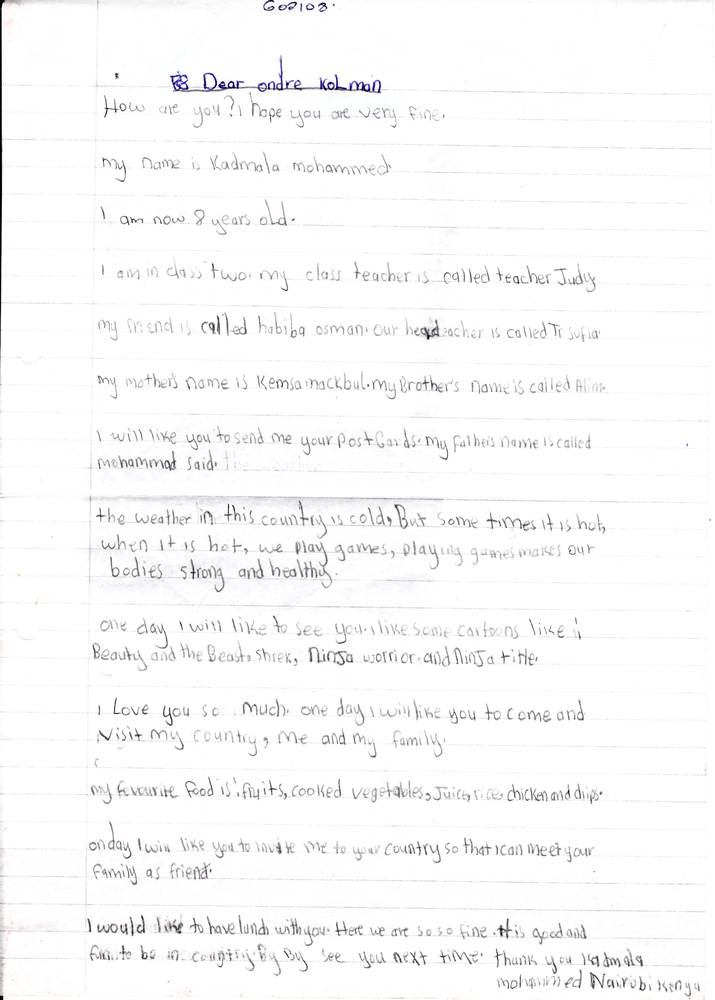 G02103.
Dear ondre KoLman
How are you? i hope you are very fine.
my name is Kadmala mohammed.
I am now 8 years old.
I am in class two. my class teacher is called teacher Judy
my friend is called habiba osman. our headteacher is called Tr sufia
my mother's name is Kemsa mackbul. my Brother's name is called
I will like you to send me your PostCards. my father's name is called
mohammad said. the weather
the weather in this country is cold, But some times it is hot,
when it is hot, we play games, playing games makes our
bodies strong and healthy.
one day I will like to see you. i like some cartoons like ;
Beauty and the Beast, shrek, Ninja worrior. and Ninja title.
I Love you so much. one day i will like you to come and
Visit my country, me and my family.
my favourite food is ; fruits, cooked vegetables, Juice, rice, chicken and chips.
on day I will like you to invite me to your country so that I can meet your
family as friend.
I would like to have lunch with you. Here we are so so fine. it is good and
fun to be in country. By By see you next time. thank you Kadmala
mohammed Nairobi Kenya